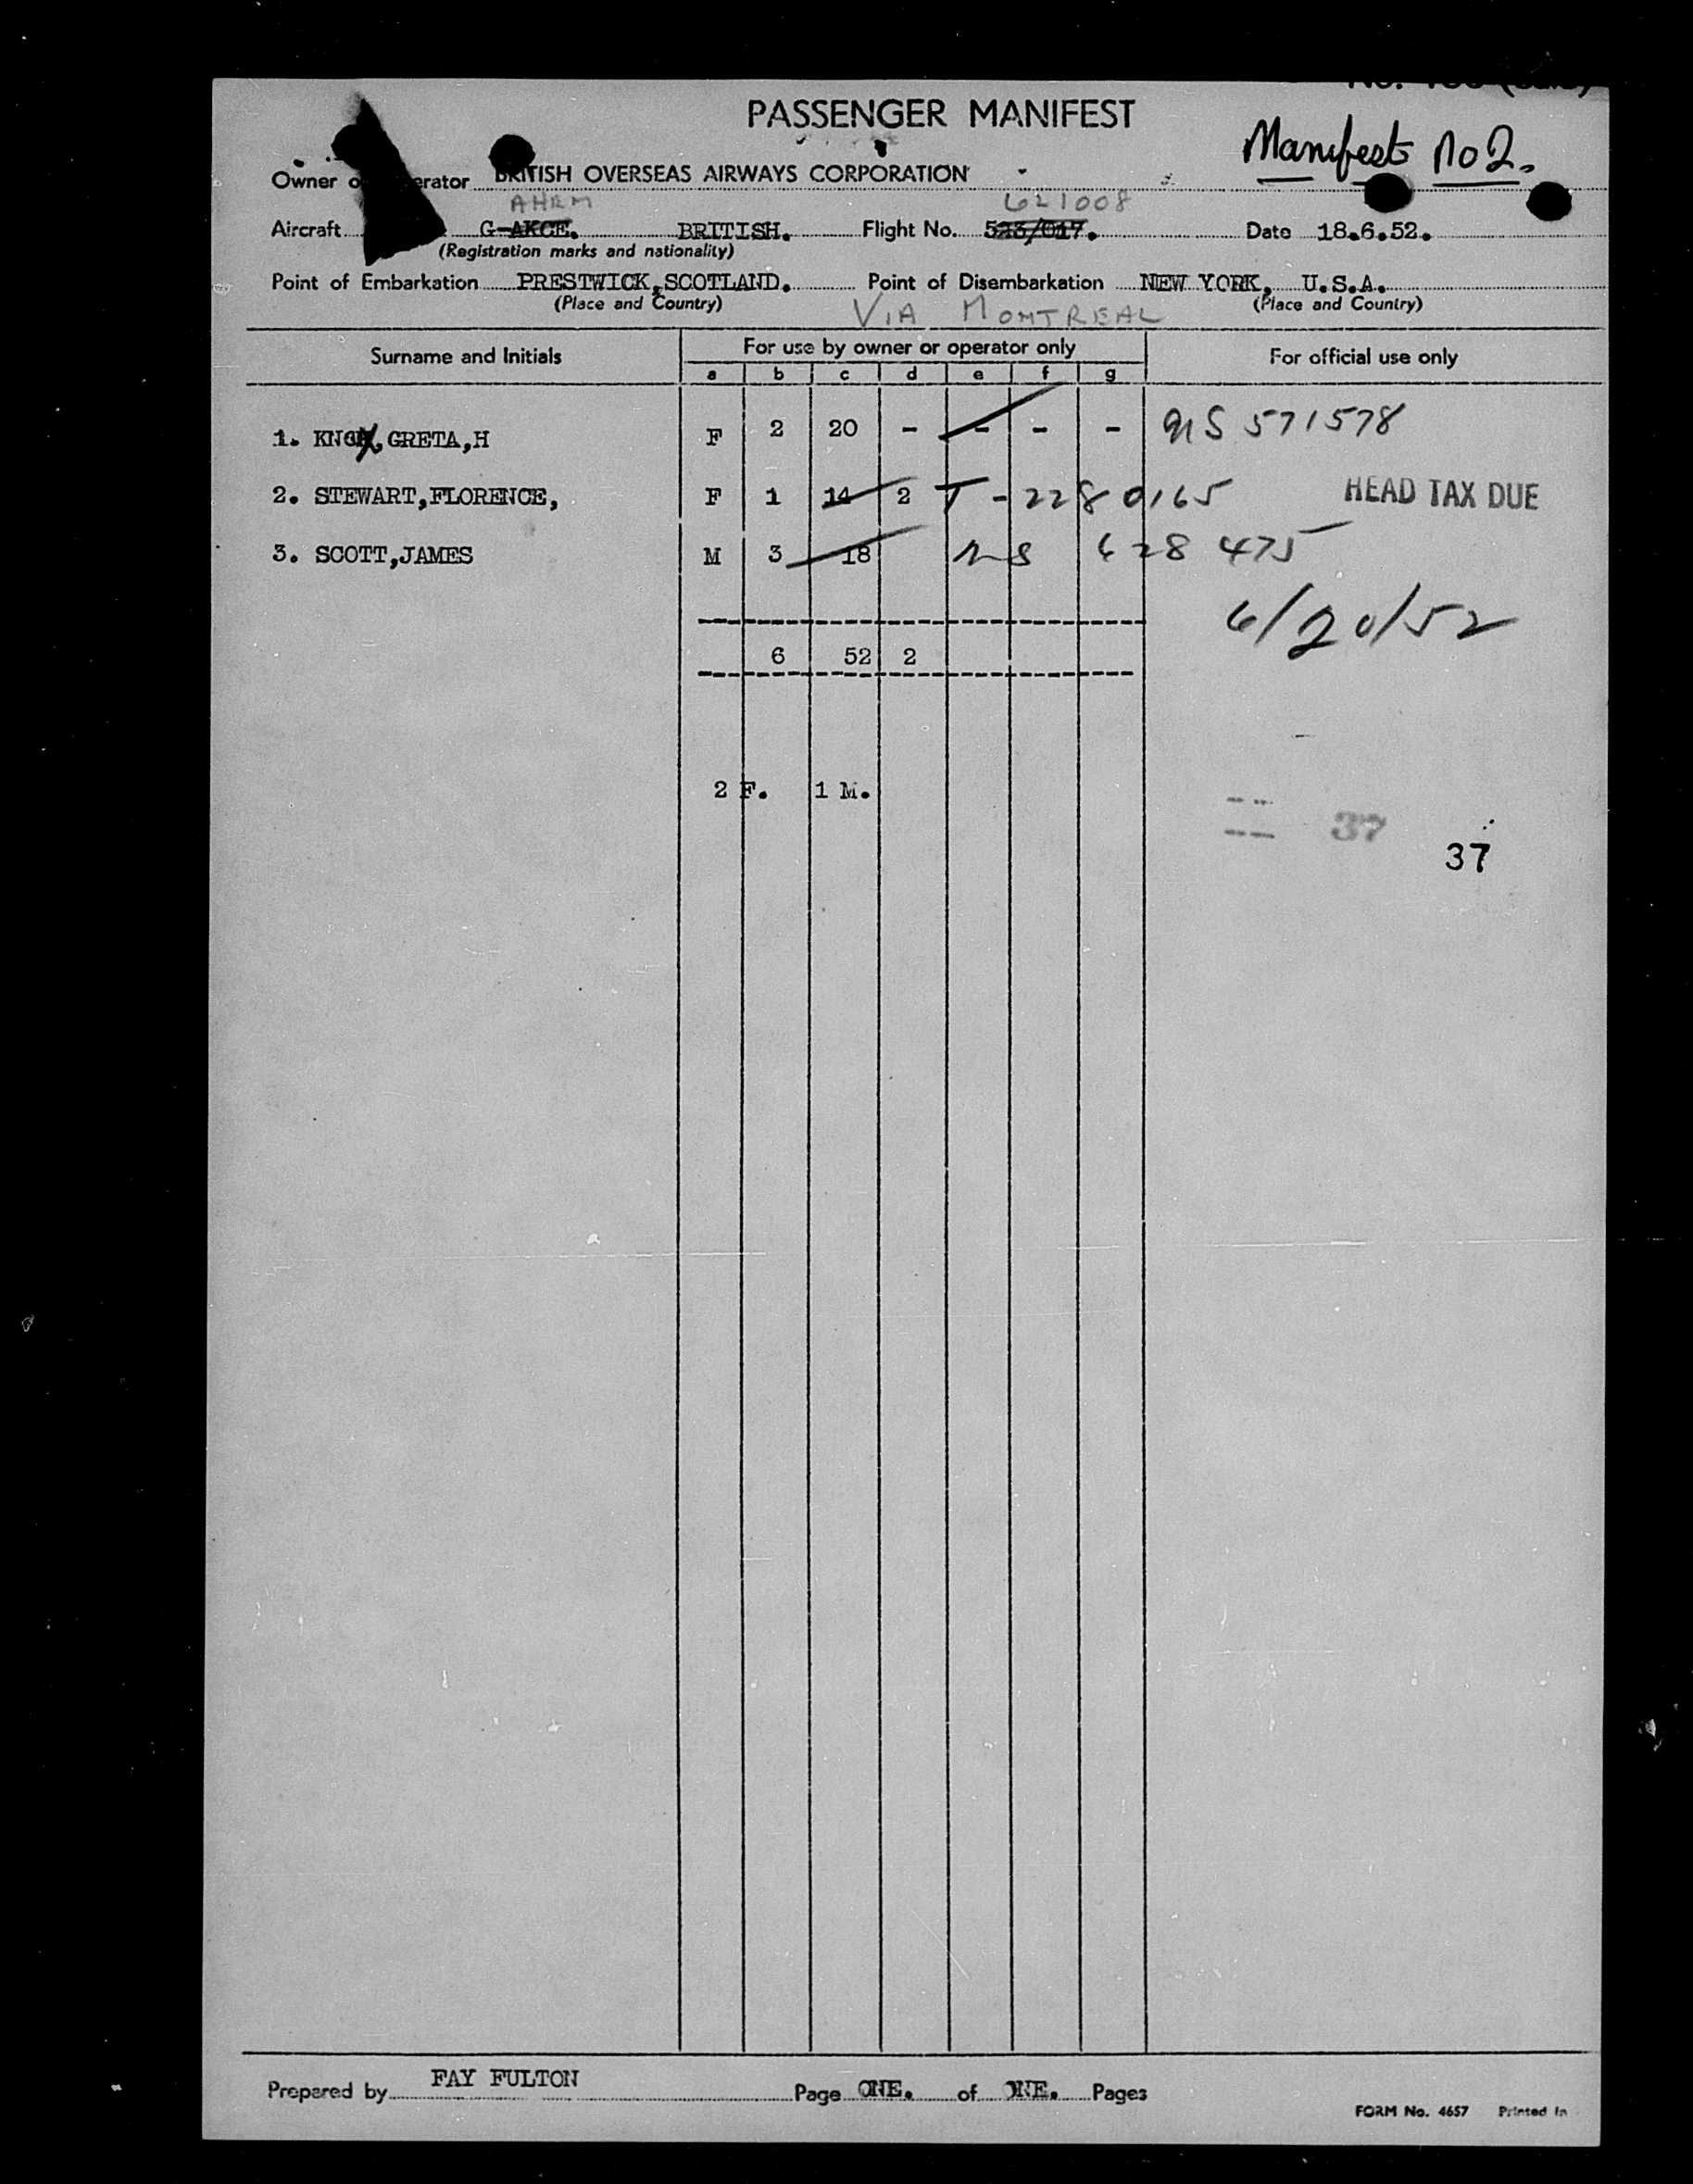 PASSENGER MANIFEST
Manifest No 2.
Owner o erator BRITISH OVERSEAS AIRWAYS CORPORATION
AHRM 621008
Aircraft G-AKCE. BRITISH. Flight No. 523/017. Date 18.6.52.
(Registration marks and nationality)
Point of Embarkation PRESTWICK,SCOTLAND. Point of Disembarkation NEW YORK, U.S.A.
(Place and Country) (Place and Country)
VIA MONTREAL
Surname and Initials For use by owner or operator only For official use only
a b c d e f g
1. KNOX,GRETA,H F 2 20 - - - - NS 571578
2. STEWART,FLORENCE, F 1 14 2 T-2280165 HEAD TAX DUE
3. SCOTT,JAMES M 3 18 NS 628475
6/20/52
6 52 2
2 F. 1 M.
37
37
Prepared by FAY FULTON Page ONE. of ONE. Pages
FORM No. 4657 Printed in